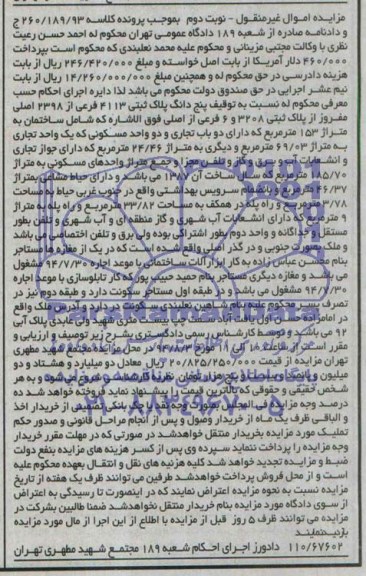 مزایده اموال غیرمنقول - نوبت دوم بموجب پرونده کلاسه 260/189/93 ج
و دادنامه صادره از شعبه 189 دادگاه عمومی تهران محکوم له احمد حسن رعیت
نظری با وکالت مجتبی مزینانی و محکوم علیه محمد نعلبندی که محکوم است بپرداخت
460/000 دلار آمریکا از بابت اصل خواسته و مبلغ 246/420/000 ریال از بابت
هزینه دادرسی در حق محکوم له و همچنین مبلغ 14/260/000/000 ریال از بابت
نیم عشر اجرایی در حق صندوق دولت محکوم می باشد لذا دایره اجرای احکام حسب
معرفی محکوم له نسبت به توقیف پنج دانگ پلاک ثبتی 4113 فرعی از 2398 اصلی
مفروز از پلاک ثبتی 3208 و 6 فرعی از اصلی فوق الاشاره که شامل ساختمان به
متراژ 153 مترمربع که دارای دو باب تجاری و دو واحد مسکونی که یک واحد تجاری
به متراژ 69/03 مترمربع و دیگری به متراژ 24/46 مترمربع که دارای جواز تجاری
و انشعابات آب و برق و گاز و تلفن مجزا و جمع متراژ واحدهای مسکونی به متراژ
185/70 مترمربع که سال ساخت آن 1387 می باشد و دارای حیاط مشاعی بمتراژ
46/37 مترمربع و بانضمام سرویس بهداشتی واقع در جنوب غربی حیاط به مساحت
3/78 مترمربع و راه پله در همکف به مساحت 33/82 مترمربع و راه پله به متراژ
9 مترمربع که دارای انشعابات آب شهری و گاز منطقه ای و آب شهری و تلفن بطور
مستقل و جداگانه و واحد دوم بطور اشتراکی بوده ولی برق و تلفن اختصاصی می باشد
و ملک بصورت جنوبی و در گذر اصلی واقع شده است که در یک از مغازه ها مستاجر
بنام محسن عباس زاده به کار ابزارآلات ساختمانی با موعد اجاره 94/7/30 مشغول
می باشد و مغازه دیگری مستاجر بنام حمید حبیب پور که کار تابلوسازی با موعد اجاره
94/7/30 مشغول می باشد و در طبقه اول مستاجر سکونت دارد و طبقه دوم نیز در
تصرف پسر محکوم علیه بنام شاهین نعلبندی سکونت دارد و آدرس ملک واقع
در امامزاده حسن
92 می باشد و توسط کارشناس رسمی دادگستری بشرح زیر توصیف و ارزیابی و
مقرر است از ساعت 10 الی 11 مورخ 94/8/3 در محل مزایده مجتمع شهید مطهری
تهران مزایده از قیمت 20/825/250/000 ریال معادل دو میلیارد و هشتاد و دو
میلیون و پانصد و بیست و پنج هزار تومان
شخص حقیقی و حقوقی که بالاترین قیمت را پیشنهاد نماید فروخته خواهد شد ده
درصد وجه مزایده فی المجلس بصورت وجه نقد یا چک بانکی تضمینی از خریدار اخذ
و الباقی ظرف یک ماه از خریدار وصول و پس از انجام مراحل قانونی و صدور حکم
تملیک مورد مزایده بخریدار منتقل خواهدشد در صورتی که در مهلت مقرر خریدار
وجه مزایده را پرداخت ننماید سپرده وی پس از کسر هزینه های مزایده بنفع دولت
ضبط و مزایده تجدید خواهد شد کلیه هزینه های نقل و انتقال بعهده محکوم علیه
است و از محل فروش پرداخت خواهدشد طرفین می توانند ظرف یک هفته از تاریخ
مزایده نسبت به نحوه مزایده اعتراض نمایند که در اینصورت تا رسیدگی به اعتراض
از سوی دادگاه مورد مزایده بنام خریدار منتقل نخواهدشد ضمنا طالبین بشرکت در
مزایده می توانند ظرف 5 روز قبل از مزایده با اطلاع از این اجرا از مال مورد مزایده
بازدید نمایند
110/67602 دادورز اجرای احکام شعبه 189 مجتمع شهید مطهری تهران